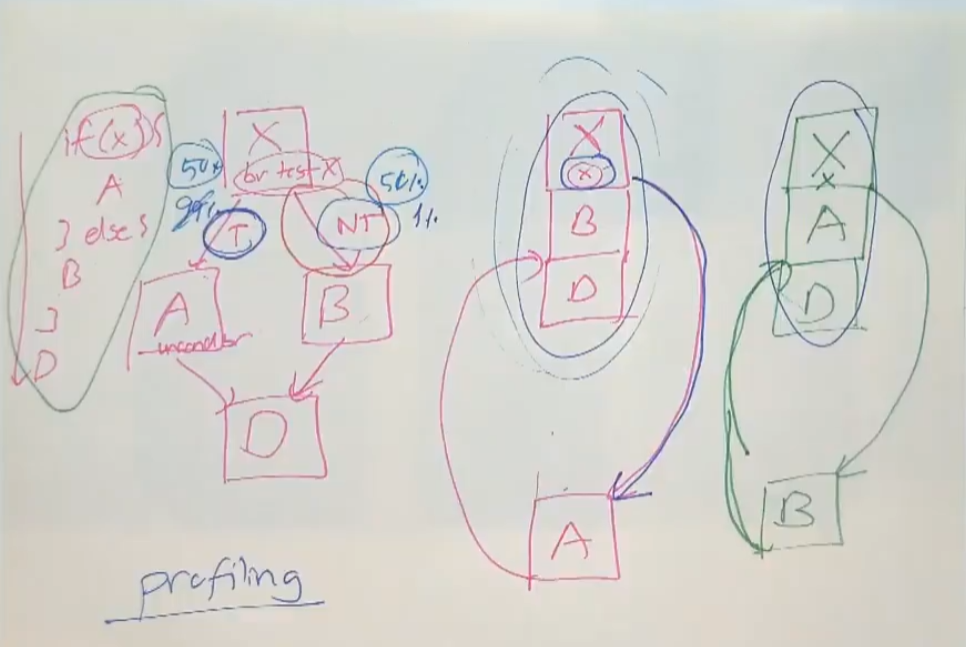 if(x){
A
} else {
B
}
D
X
br test X
50%
50%
99%
T
NT
1%
A
uncond br
B
D
X
x
B
D
A
X
x
A
D
B
profiling